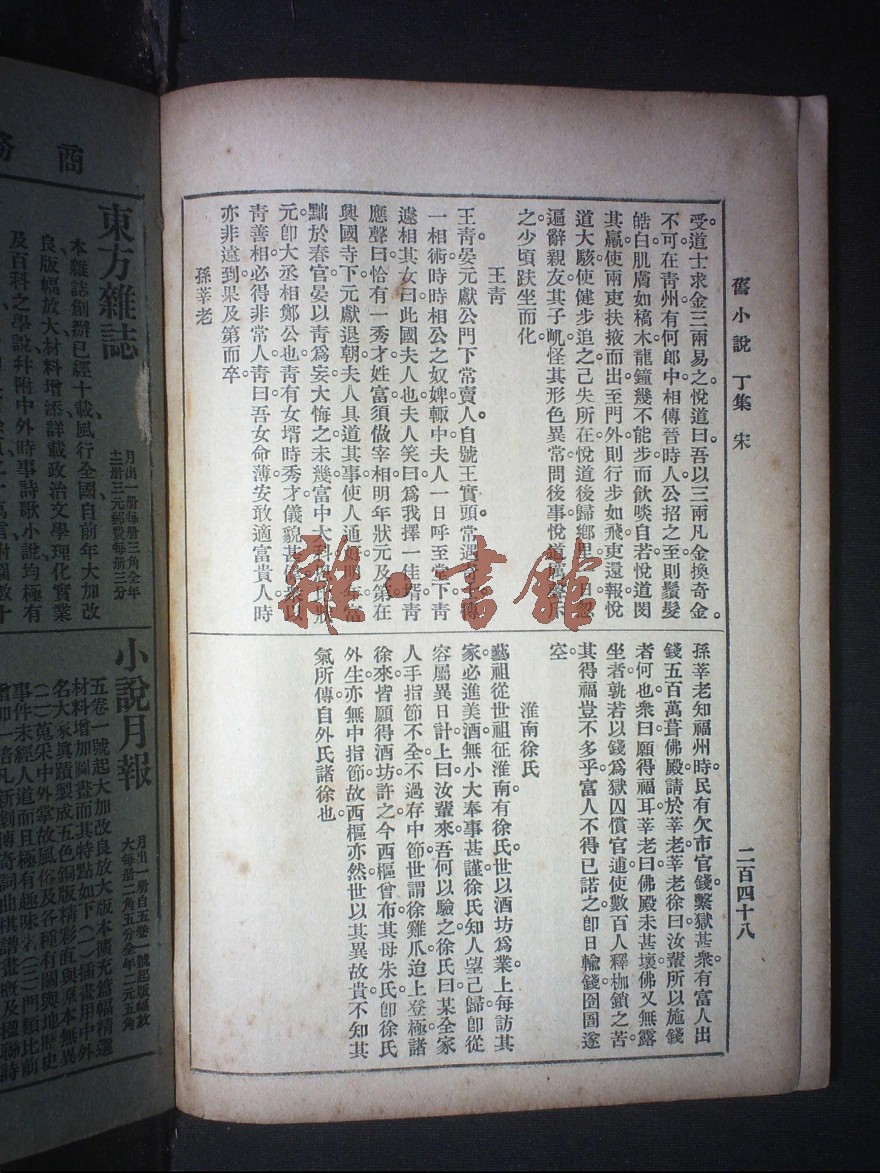 舊小說 丁集 宋
二百四十八
受道士求金三兩易之悅道曰吾以三兩凡金換奇金。
不可。在青州有何郎中相傳晉時人公招之至則鬚髮
皓白肌膚如槁木龍鐘幾不能步而飲啖自若悅道閔
其羸使兩吏扶掖而出至門外則行步如飛吏還報悅
道大駭使健步追之已失所在悅道後歸鄉里
遍辭親友其子㞦怪其形色異常問後事悅道
之少頃趺坐而化。
王青
王青晏元獻公門下常賣人。自號王實頭。常遇
一相術時時相公之奴婢輙中夫人一日呼至堂下青
遽相其女曰此國夫人也夫人笑曰為我擇一佳壻青
應聲曰恰有一秀才姓富須做宰相明年狀元及第在
興國寺下元獻退朝夫人具道其事使人通
黜於春官晏以青為妄大悔之未幾富中大科
元。卽大丞相鄭公也青有女壻時秀才儀貌甚
青善相必得非常人青曰吾女命薄安敢適富貴人時
亦非遠到果及第而卒。
孫莘老
孫莘老知福州時民有欠市官錢繫獄甚衆有富人出
錢五百萬葺佛殿請於莘老莘老徐曰汝輩所以施錢
者何也衆曰願得福耳莘老曰佛殿未甚壞佛又無露
坐者孰若以錢為獄囚償官逋使數百人釋枷鎖之苦
其得福豈不多乎富人不得已諾之卽日輸錢囹圄遂
空。
淮南徐氏
藝祖從世祖征淮南有徐氏世以酒坊為業上每訪其
家必進美酒無小大奉事甚謹徐氏知人望己歸卽從
容屬異日計上曰汝輩來吾何以驗之徐氏曰某全家
人手指節不全不過存中節世謂徐雞爪迨上登極諸
徐來皆願得酒坊許之今西樞曾布其母朱氏卽徐氏
外生亦無中指節故西樞亦然世以其異故貴不知其
氣所傳自外氏諸徐也。
雜·書館
商務
東方雜誌
月出一册每册三角全年
十二册三元郵費每册三分
本雜誌創辦已經十載風行全國自前年大加改
良版幅放大材料增添詳載政治文學理化實業
及百科之學說幷附中外時事詩歌小說均極有
小說月報
月出一册自五卷一號起版幅放
大每册二角五分全年二元五角
五卷一號起大加改良放大版本擴充篇幅精選
材料增加圖畫而其特點如下（一）插畫用中外
名大家眞蹟製成五色銅版精彩直與原本無異
（二）蒐采中外掌故風俗及各種有關輿地歷史
事件未經人道而且極有趣味者（三）門類比前
增加一倍凡新劇傳奇詞曲棋譜畫槪及楹聯詩